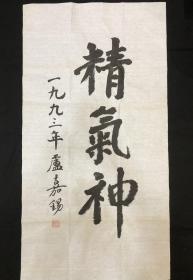 精氣神
一九九三年 盧嘉錫